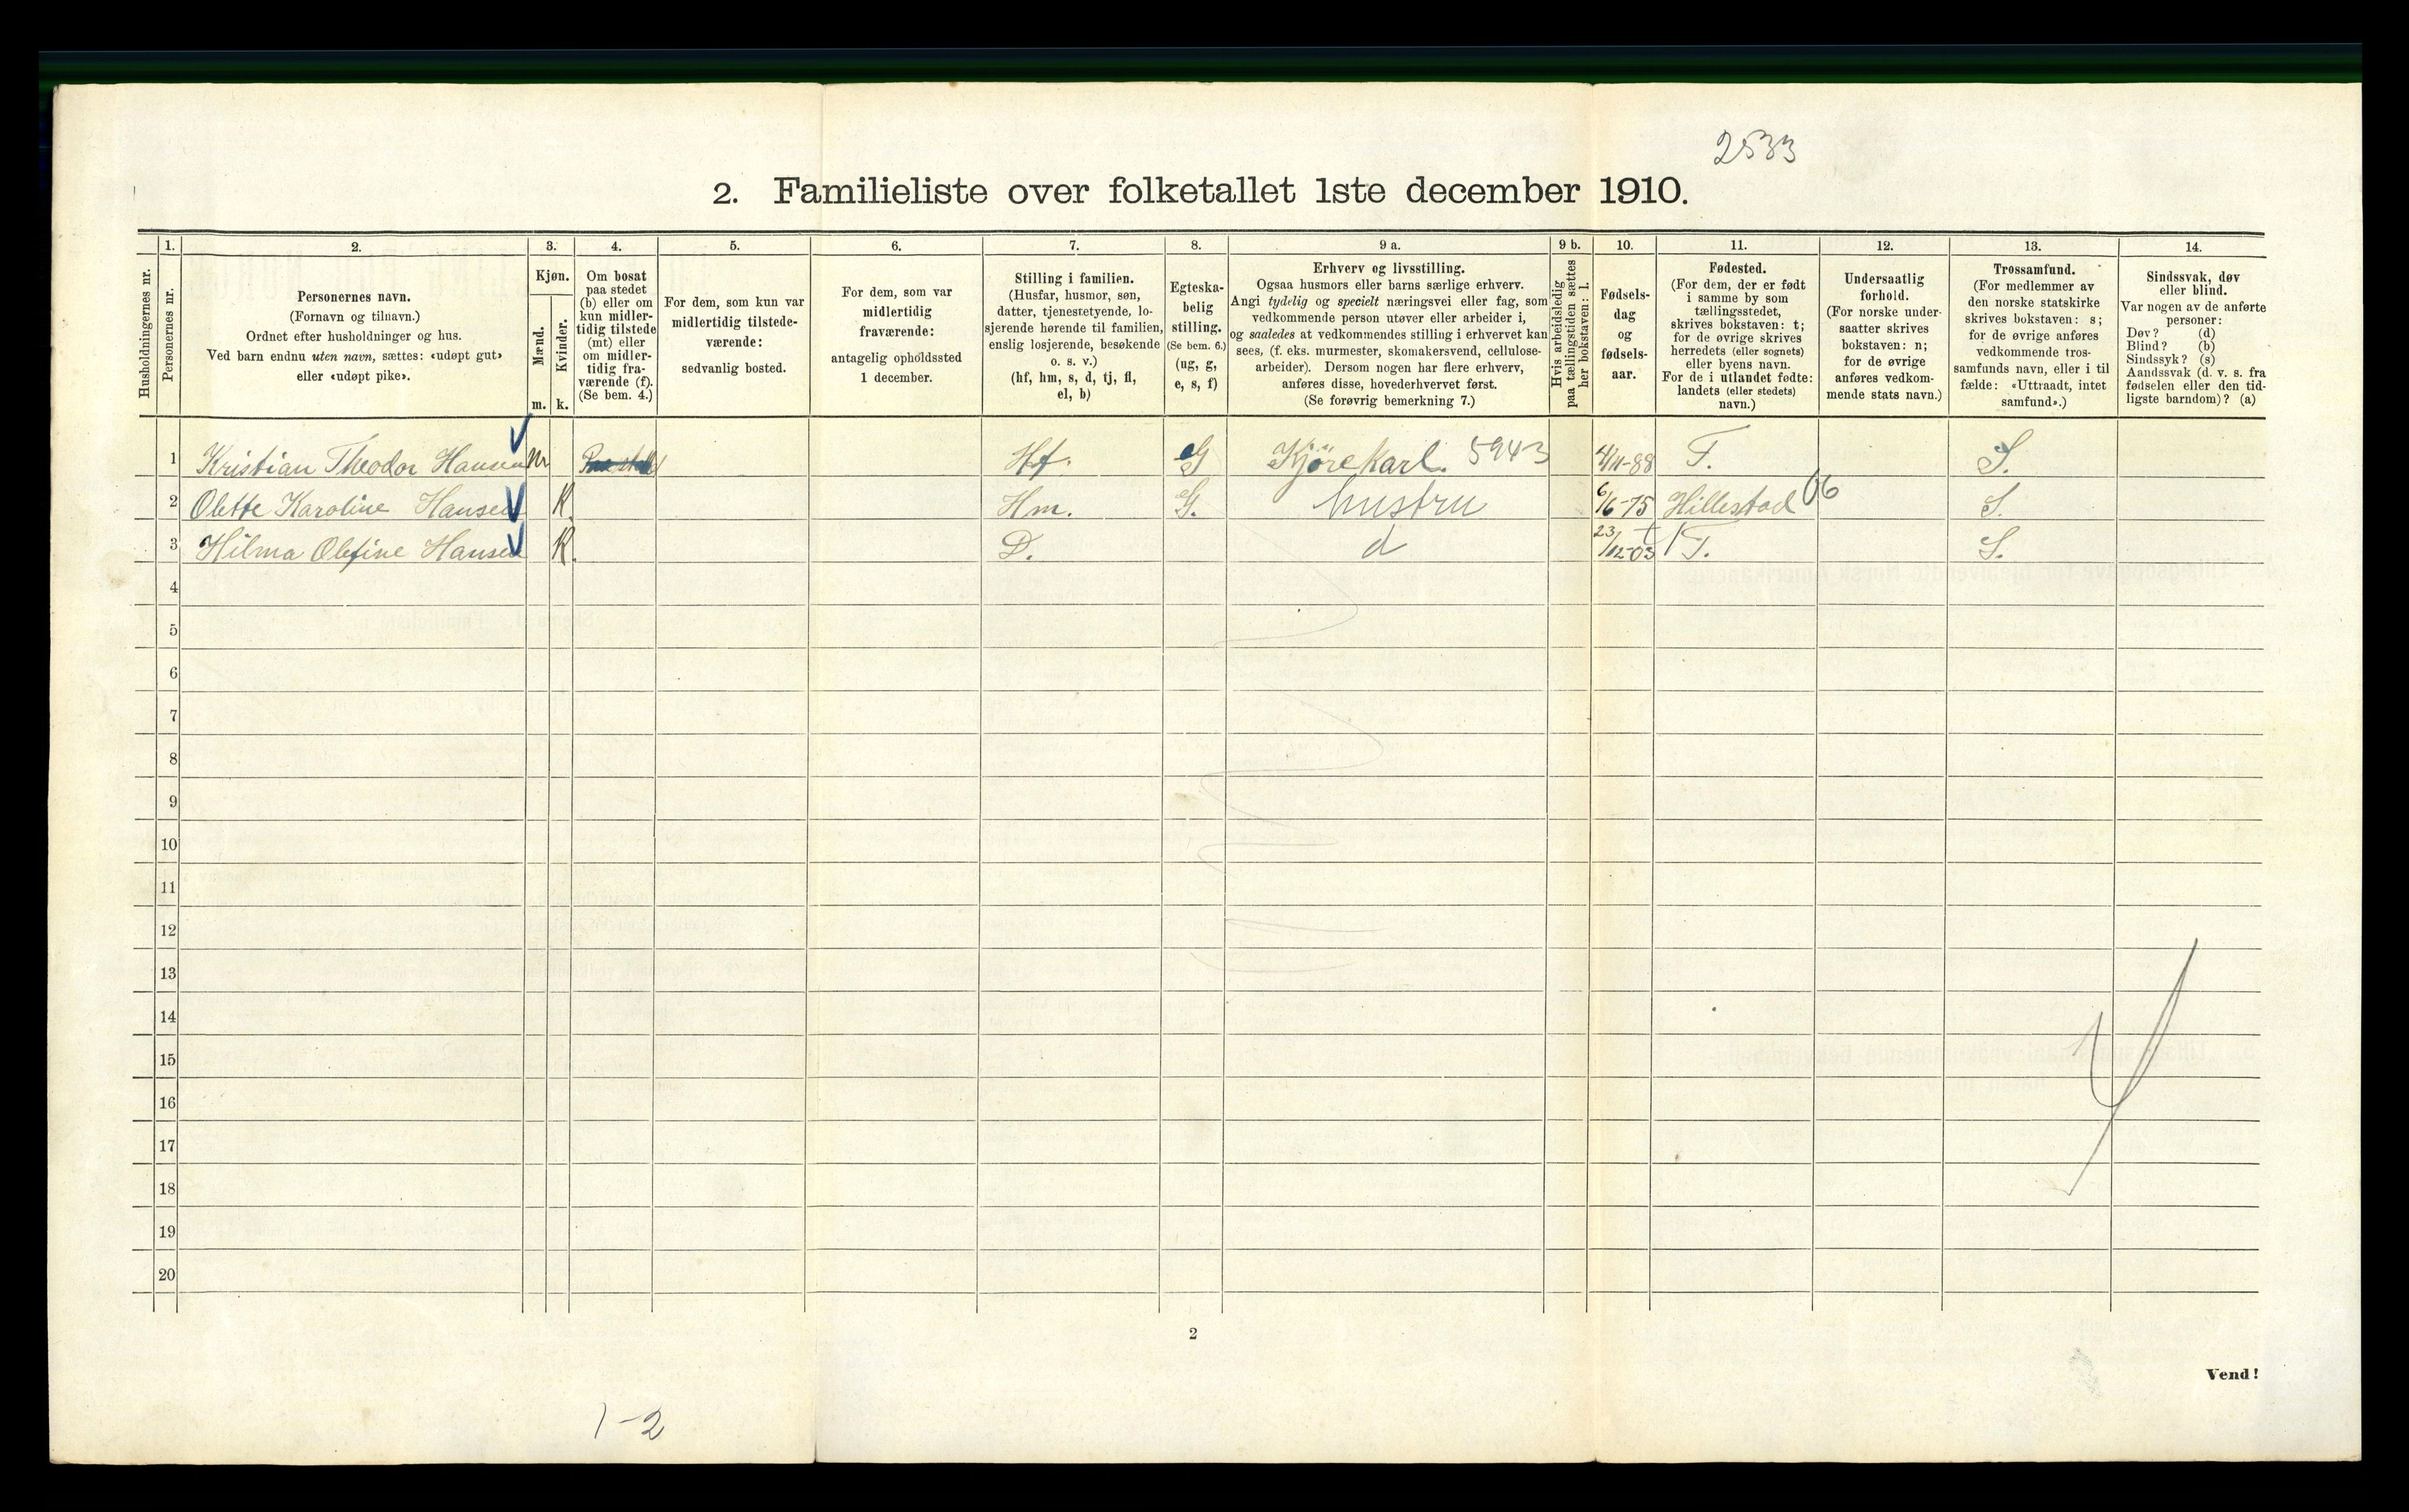 2533
2. Familieliste over folketallet 1ste december 1910.
1. 2. 3. 4. 5. 6. 7. 8. 9 a. 9 b. 10. 11. 12. 13. 14.
Husholdningernes nr.
Personernes nr.
Personernes navn.
(Fornavn og tilnavn.)
Ordnet efter husholdninger og hus.
Ved barn endnu uten navn, sættes: «udøpt gut»
eller «udøpt pike».
Kjøn.
Mænd.
Kvinder.
m. k.
Om bosat
paa stedet
(b) eller om
kun midler-
tidig tilstede
(mt) eller
om midler-
tidig fra-
værende (f).
(Se bem. 4.)
For dem, som kun var
midlertidig tilstede-
værende:
sedvanlig bosted.
For dem, som var
midlertidig
fraværende:
antagelig opholdssted
1 december.
Stilling i familien.
(Husfar, husmor, søn,
datter, tjenestetyende, lo-
sjerende hørende til familien,
enslig losjerende, besøkende
o. s. v.)
(hf, hm, s, d, tj, fl,
el, b)
Egteska-
belig
stilling.
(Se bem. 6.)
(ug, g,
e, s, f)
Erhverv og livsstilling.
Ogsaa husmors eller barns særlige erhverv.
Angi tydelig og specielt næringsvei eller fag, som
vedkommende person utøver eller arbeider i,
og saaledes at vedkommendes stilling i erhvervet kan
sees, (f. eks. murmester, skomakersvend, cellulose-
arbeider). Dersom nogen har flere erhverv,
anføres disse, hovederhvervet først.
(Se forøvrig bemerkning 7.)
Hvis arbeidsledig
paa tællingstiden sættes
her bokstaven: l.
Fødsels-
dag
og
fødsels-
aar.
Fødested.
(For dem, der er født
i samme by som
tællingsstedet,
skrives bokstaven: t;
for de øvrige skrives
herredets (eller sognets)
eller byens navn.
For de i utlandet fødte:
landets (eller stedets)
navn.)
Undersaatlig
forhold.
(For norske under-
saatter skrives
bokstaven: n;
for de øvrige
anføres vedkom-
mende stats navn.)
Trossamfund.
(For medlemmer av
den norske statskirke
skrives bokstaven: s;
for de øvrige anføres
vedkommende tros-
samfunds navn, eller i til
fælde: «Uttraadt, intet
samfund».)
Sindssvak, døv
eller blind.
Var nogen av de anførte
personer:
Døv? (d)
Blind? (b)
Sindssyk? (s)
Aandssvak (d. v. s. fra
fødselen eller den tid-
ligste barndom)? (a)
1 Kristian Theodor Hansen Hf. G Kjörekarl. 5943 4/11-88 T. S.
2 Olette Karoline Hansen K. Hm. G. hustru 6/6-75 Hillestad 06 S.
3 Hilma Olefine Hansen K. D. d 23/12-03 t T. S.
4
5
6
7
8
9
10
11
12
13
14
15
16
17
18
19
20
2
Vend!
1-2